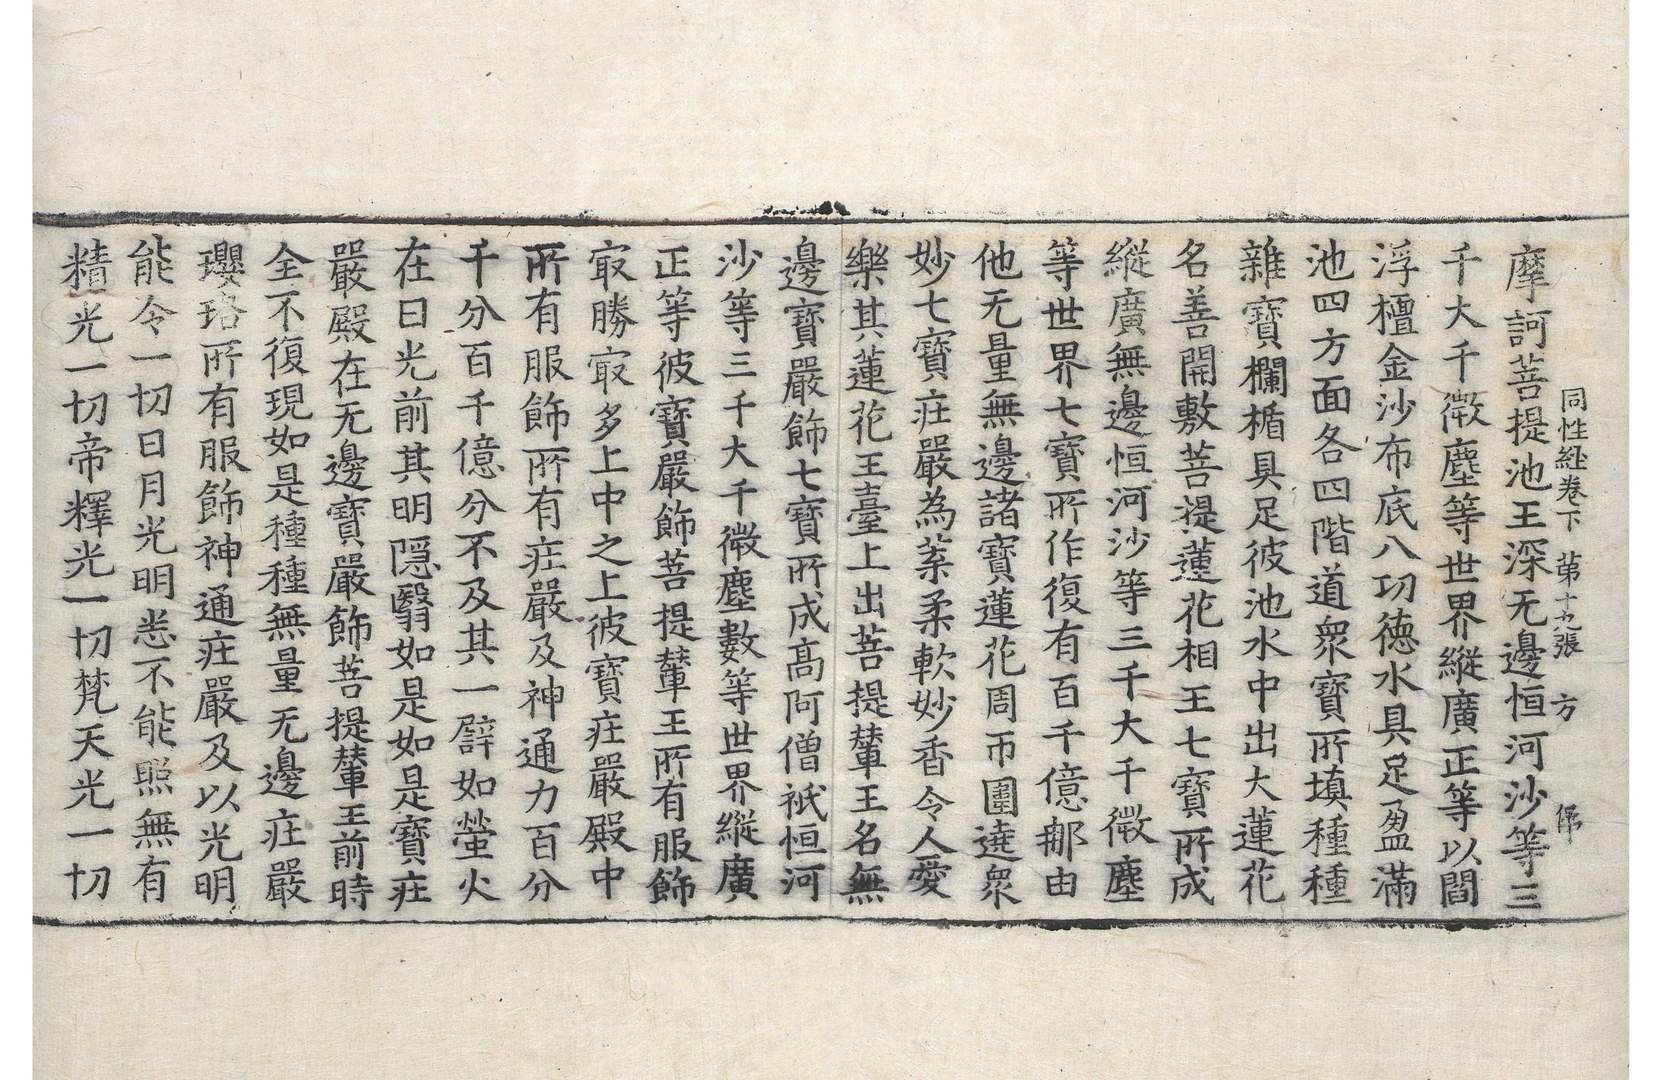 同性経卷下 苐十九張 方
摩訶菩提池王深无邊恒河沙等三
千大千微塵等世界縱廣正等以閻
浮檀金沙布底八功德水具足盈滿
池四方面各四階道衆寶所填種種
雜寶欄楯具足彼池水中出大蓮花
名善開敷菩提蓮花相王七寶所成
縱廣無邊恒河沙等三千大千微塵
等世界七寶所作復有百千億那由
他无量無邊諸寶蓮花周帀圍遶衆
妙七寶㽵嚴為茱柔軟妙香令人愛
樂其蓮花王臺上出菩提輦王名無
邊寶嚴飾七寶所成髙阿僧祇恒河
沙等三千大千微塵數等世界縱廣
正等彼寶嚴飾菩提輦王所有服飾
㝡勝㝡多上中之上彼寶㽵嚴殿中
所有服飾所有㽵嚴及神通力百分
千分百千億分不及其一譬如螢火
在日光前其明隠翳如是如是寶㽵
嚴殿在无邊寶嚴飾菩提輦王前時
全不復現如是種種無量无邊㽵嚴
瓔珞所有服飾神通㽵嚴及以光明
能令一切日月光明悉不能照無有
精光一切帝釋光一切梵天光一切